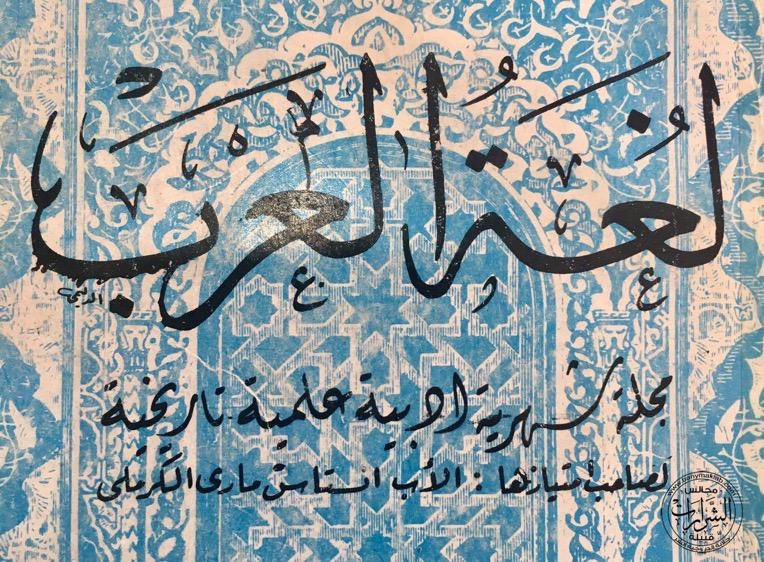 لُغَةُ العَرَب
مجلة شهرية ادبية علمية تاريخية
لصاحب امتيازها : الأب انستاس ماري الكرملي
مجالس
الشرارات
قبيلة